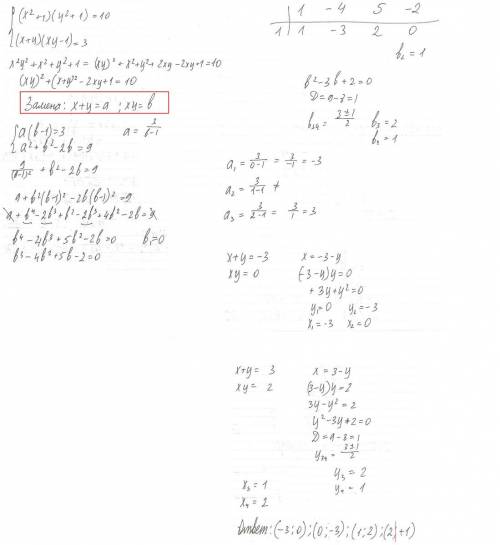 (x²+1)(y²+1)=10
(x+y)(xy-1)=3
x²y²+x²+y²+1=(xy)²+x²+y²+2xy-2xy+1=10
(xy)²+(x+y)²-2xy+1=10
Замена: x+y=a ; xy=b
a(b-1)=3   a=3/(b-1)
a²+b²-2b=9
9/(b-1)²+b²-2b=9
b⁴-4b³+5b²-2b=0   b₁=0
b³-4b²+5b-2=0
1 -4 5 -2
1 | 1 -3 2 0
b₂=1
b²-3b+2=0
D=9-8=1
b₃,₄=(3±1)/2   b₃=2
b₄=1
a₁=3/(0-1)=3/-1=-3
a₂=3/(1-1) ≠
a₃=3/(2-1)=3/1=3
x+y=-3   x=-3-y
xy=0   (-3-y)y=0
+3y+y²=0
y₁=0   y₂=-3
x₁=-3   x₂=0
x+y=3   x=3-y
xy=2   (3-y)y=2
3y-y²=2
y²-3y+2=0
D=9-8=1
y₃,₄=(3±1)/2
y₃=2
x₃=1   y₄=1
x₄=2
Ответ: (-3;0);(0;-3);(1;2);(2;+1)